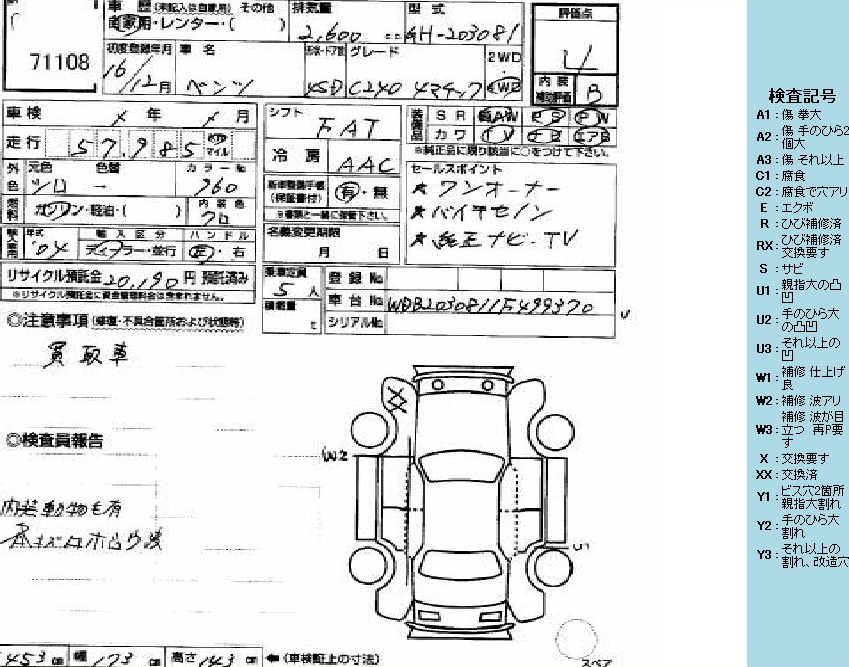 車 歴 (未記入は自家用) その他
自家用・レンター・( )
排気量
2,600 cc
型 式
GH-203081
評価点
4
71108
初度登録年月
16/12月
車 名
ベンツ
形状・ドア数
4SD
グレード
C240 4マチック
2WD
4WD
内 装
補助評価
B
車 検 × 年 × 月
シフト
FAT
装備品
S R
AW
P S
P W
カ ワ
T V
ナビ
エアB
※純正品に限り該当に○をつけて下さい。
走行 57,985 km マイル
冷 房
AAC
セールスポイント
★ ワンオーナー
★ バイキセノン
★ 純正ナビ.TV
外色
元色
シロ
色替
-
カラーNo
960
新車整備手帳
(保証書付)
有・無
※書類と一緒に保管下さい。
燃料
ガソリン・軽油・( )
内装色
クロ
名義変更期限
月 日
輸入車用
年式
'04
輸入区分
ディーラー・並行
ハンドル
左・右
リサイクル預託金 20,190 円 預託済み
※リサイクル預託金に資金管理料金は含まれません。
乗車定員
5 人
積載量
t
登 録 No
車 台 No WDB2030811F499370
シリアルNo
◎注意事項 (修復・不具合箇所および状態等)
買取車
◎検査員報告
W2
内装動物毛有
U1
453 cm 幅 173 cm 高さ 143 cm ←(車検証上の寸法)
スペア
検査記号
A1:傷 拳大
A2:傷 手のひら2個大
A3:傷 それ以上
C1:腐食
C2:腐食で穴アリ
E:エクボ
R:ひび補修済
RX:ひび補修済 交換要す
S:サビ
U1:親指大の凸凹
U2:手のひら大の凸凹
U3:それ以上の凹
W1:補修 仕上げ良
W2:補修 波アリ
W3:補修 波が目立つ 再P要す
X:交換要す
XX:交換済
Y1:ビス穴2箇所 親指大割れ
Y2:手のひら大割れ
Y3:それ以上の割れ、改造穴